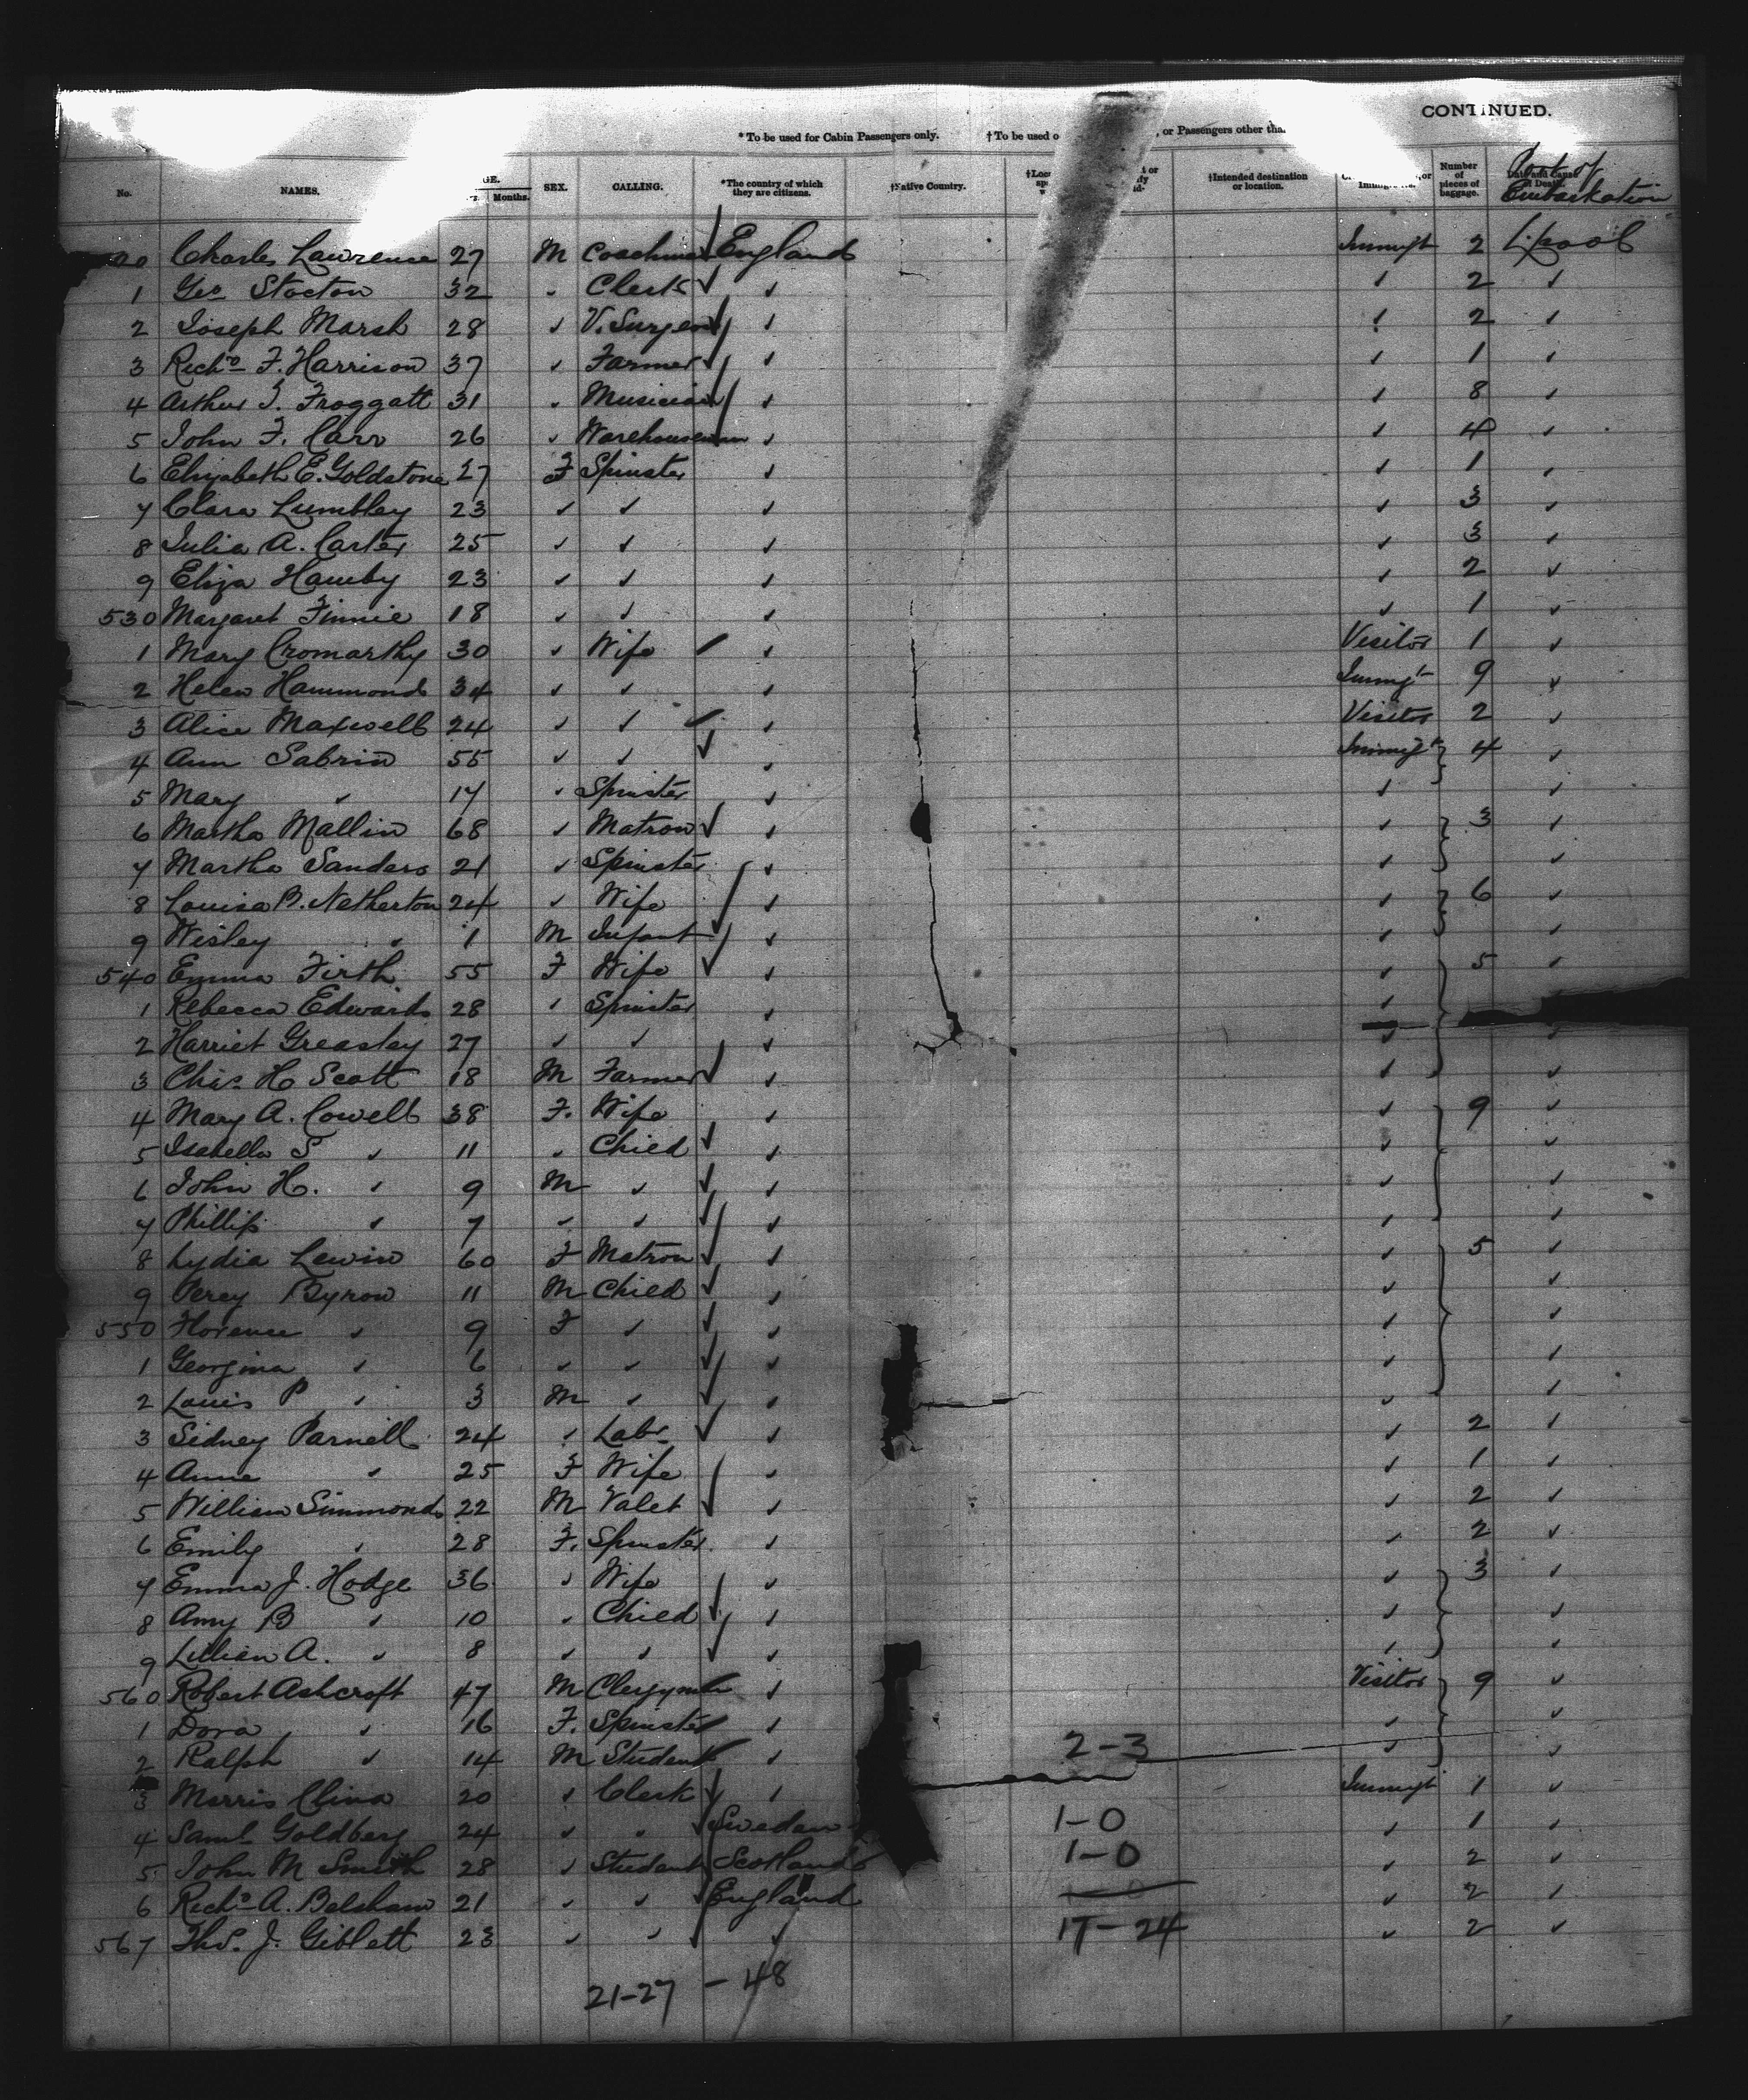 CONTINUED.
* To be used for Cabin Passengers only. † To be used o , or Passengers other tha
No. NAMES. GE. Months. SEX. CALLING. *The country of which they are citizens. †Native Country. †Intended destination or location. Number of pieces of baggage. Port of Embarkation
20 Charles Lawrence 27 M Coachman England Immigt 2 L'pool
1 Geo Stocton 32 " Clerk " " 2 "
2 Joseph Marsh 28 " V. Surgeon " " 2 "
3 Richd F. Harrison 37 " Farmer " " 1 "
4 Arthur J. Froggatt 31 " Musician " " 8 "
5 John F. Carr 26 " Warehouseman " " 4 "
6 Elizabeth E. Goldstone 27 F Spinster " " 1 "
7 Clara Lumbley 23 " " " " 3 "
8 Julia A. Carter 25 " " " " 3 "
9 Eliza Hamby 23 " " " " 2 "
530 Margaret Finnie 18 " " " " 1 "
1 Mary Cromarthy 30 " Wife " Visitor 1 "
2 Helen Hammond 34 " " " Immigt 9 "
3 Alice Maxwell 24 " " " Visitor 2 "
4 Ann Sabrin 55 " " " Immigt 4 "
5 Mary " 17 " Spinster " " "
6 Martha Mallin 68 " Matron " " 3 "
7 Martha Sanders 21 " Spinster " " "
8 Louisa B. Netherton 24 " Wife " " 6 "
9 Wesley " 1 M Infant " " "
540 Emma Firth 55 F Wife " " 5 "
1 Rebecca Edwards 28 " Spinster " "
2 Harriet Greasley 27 " " " " "
3 Chas H Scott 18 M Farmer " " "
4 Mary A. Cowell 38 F. Wife " " 9 "
5 Isabella S " 11 " Child " " "
6 John H. " 9 M " " " "
7 Phillip " 7 " " " " "
8 Lydia Lewin 60 F Matron " " 5 "
9 Percy Byron 11 M Child " " "
550 Florence " 9 F " " " "
1 Georgina " 6 " " " " "
2 Louis P " 3 M " " " "
3 Sidney Parnell 24 " Labr " " 2 "
4 Anne " 25 F Wife " " 1 "
5 William Simmonds 22 M Valet " " 2 "
6 Emily " 28 F. Spinster " " 2 "
7 Emma J. Hodge 36 " Wife " " 3 "
8 Amy B " 10 " Child " " "
9 Lillian A. " 8 " " " " "
560 Robert Ashcroft 47 M Clergyman " Visitor 9 "
1 Dora " 16 F. Spinster " " "
2 Ralph " 14 M Student " 2-3 " "
3 Morris Clina 20 " Clerk " Immigt 1 "
4 Saml Goldberg 24 " " Sweden 1-0 " 1 "
5 John M Smith 28 " Student Scotland 1-0 " 2 "
6 Richd A. Belsham 21 " " England " 2 "
567 Thos. J. Giblett 23 " " " 17-24 " 2 "
21-27 - 48